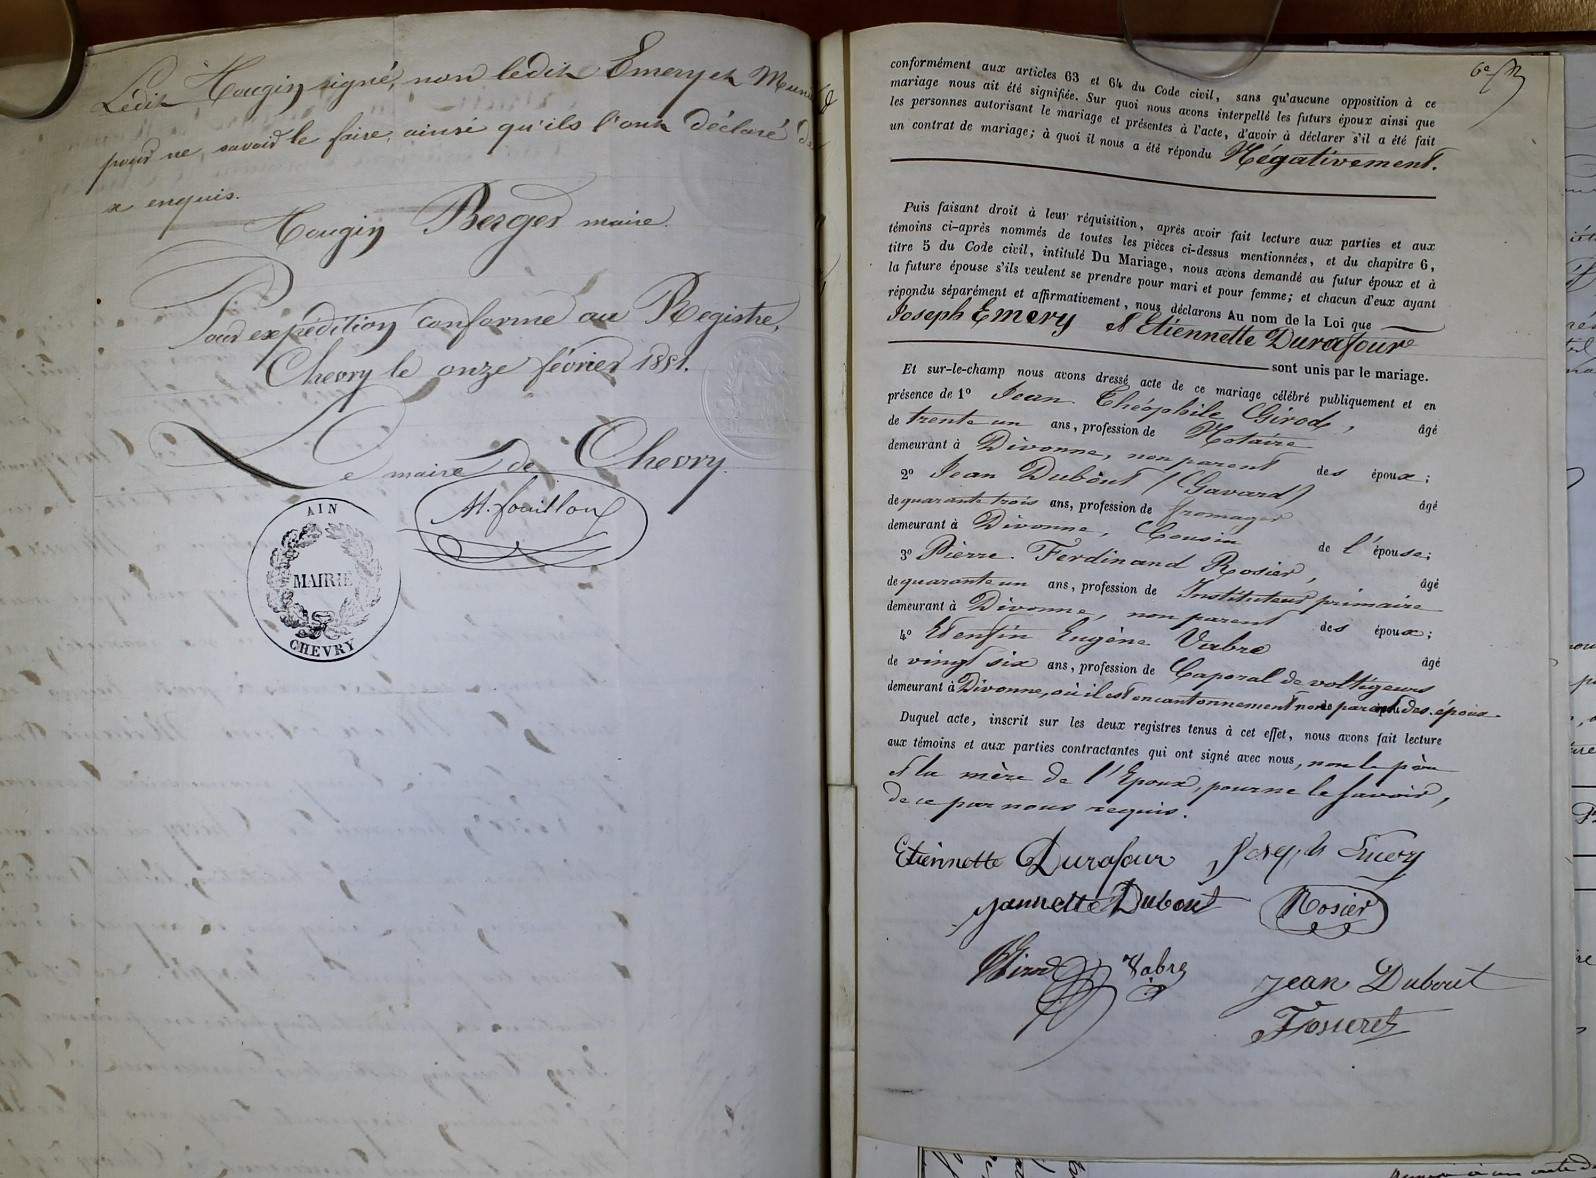 Ledit Hougin signé, non ledit Emery et
pour ne savoir le faire, ainsi qu'ils l'ont déclaré
requis.
Hougin Berger maire.
Pour expédition conforme au Registre,
Chevry le onze février 1851.
Le maire de Chevry.
AIN
MAIRIE
CHEVRY
conformément aux articles 63 et 64 du Code civil, sans qu'aucune opposition à ce
mariage nous ait été signifiée. Sur quoi nous avons interpellé les futurs époux ainsi que
les personnes autorisant le mariage et présentes à l'acte, d'avoir à déclarer s'il a été fait
un contrat de mariage; à quoi il nous a été répondu Négativement.
Puis faisant droit à leur réquisition, après avoir fait lecture aux parties et aux
témoins ci-après nommés de toutes les pièces ci-dessus mentionnées, et du chapitre 6,
titre 5 du Code civil, intitulé Du Mariage, nous avons demandé au futur époux et à
la future épouse s'ils veulent se prendre pour mari et pour femme; et chacun d'eux ayant
répondu séparément et affirmativement, nous déclarons Au nom de la Loi que
Joseph Emery et Etiennette Durafour
sont unis par le mariage.
Et sur-le-champ nous avons dressé acte de ce mariage célébré publiquement et en
présence de 1º Jean Théophile Girod, âgé
de trente un ans, profession de Notaire
demeurant à Divonne, non parent des époux;
2º Jean Dubout (Gavard) âgé
de quarante trois ans, profession de fromager
demeurant à Divonne, Cousin de l'épouse;
3º Pierre Ferdinand Rosier, âgé
de quarante un ans, profession de Instituteur primaire
demeurant à Divonne, non parent des époux;
4º Et enfin Eugène Vabre âgé
de vingt six ans, profession de Caporal de voltigeurs
demeurant à Divonne, où il est en cantonnement non parent des époux
Duquel acte, inscrit sur les deux registres tenus à cet effet, nous avons fait lecture
aux témoins et aux parties contractantes qui ont signé avec nous, non le père
et la mère de l'Epoux, pour ne le savoir,
de ce par nous requis.
Etiennette Durafour Joseph Emery
Jannette Dubout Rosier
Girod Vabre
Jean Dubout